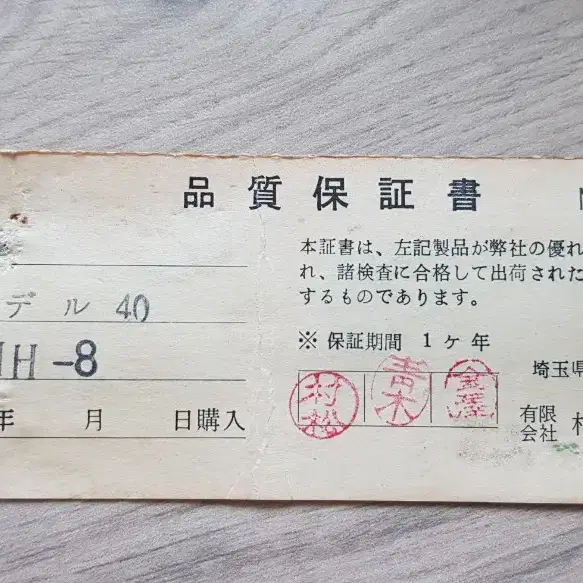 品質保証書
本証書は、左記製品が弊社の優れ
れ、諸検査に合格して出荷された
するものであります。
※ 保証期間 1ヶ年
デル 40
H-8
年 月 日購入
村松
青木
埼玉県
有限会社